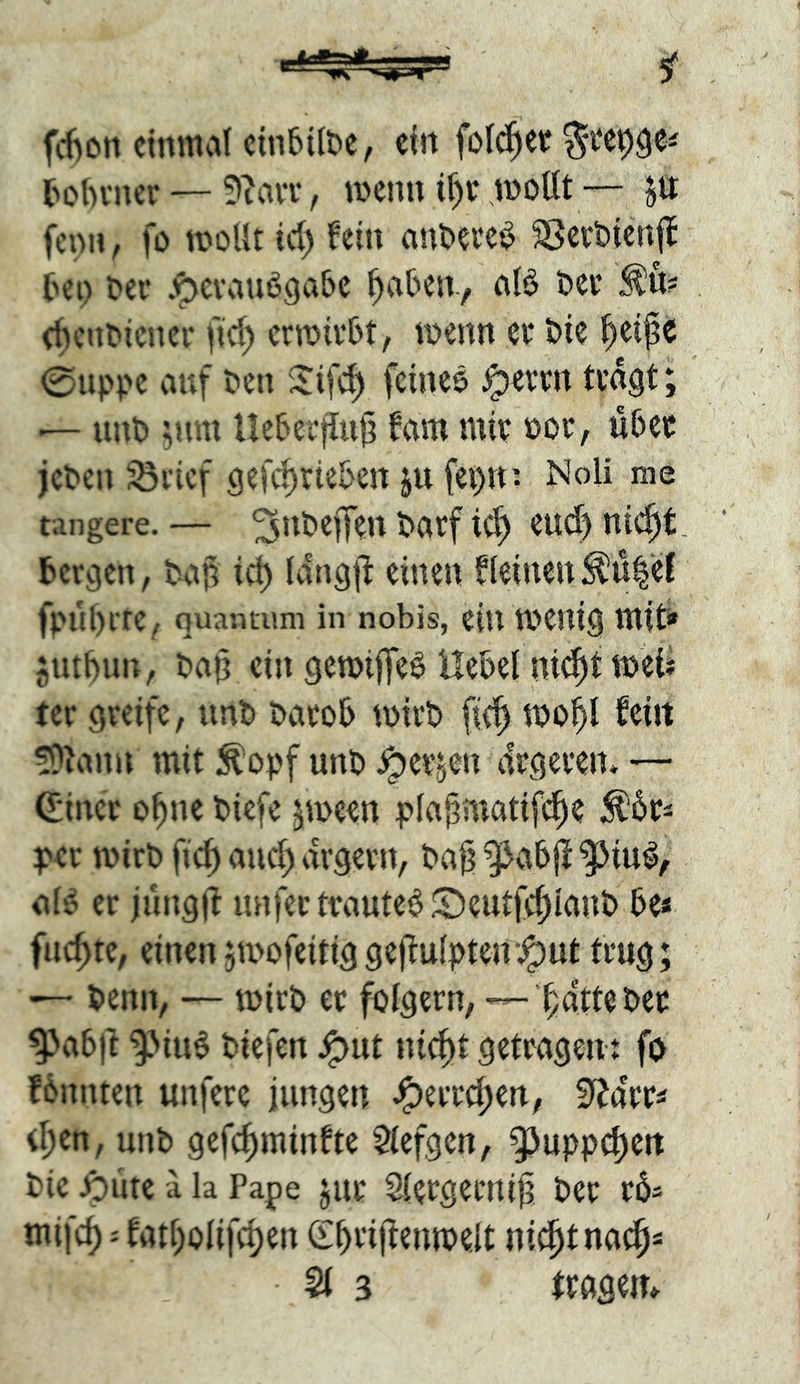 5
schon einmal einbilde, ein solcher Freyge-
bohrner — Narr, wenn ihr wollt — zu
seyn, so wollt ich kein anderes Verdienst
bey der Herausgabe haben, als der Kü-
chendiener sich erwirbt, wenn er die heiße
Suppe auf den Tisch seines Herrn trägt;
— und zum Ueberfluß kam mir vor, über
jeden Brief geschrieben zu seyn: Noli me
tangere. — Indessen darf ich euch nicht
bergen, daß ich längst einen kleinen Kützel
spührte, quantum in nobis, ein wenig mit-
zuthun, daß ein gewisses Uebel nicht wei-
ter greife, und darob wird sich wohl kein
Mann mit Kopf und Herzen ärgeren. —
Einer ohne diese zween plaßmatische Kör-
per wird sich auch ärgern, daß Pabst Pius,
als er jüngst unser trautes Deutschland be-
suchte, einen zwoseitig gestulpten Hut trug;
— denn, — wird er folgern, — hätte der
Pabst Pius diesen Hut nicht getragen: so
könnten unsere jungen Herrchen, Närr-
chen, und geschminkte Aefgen, Puppchen
die Hüte à la Pape zur Aergerniß der rö-
misch-katholischen Christenwelt nicht nach-
A 3 tragen.